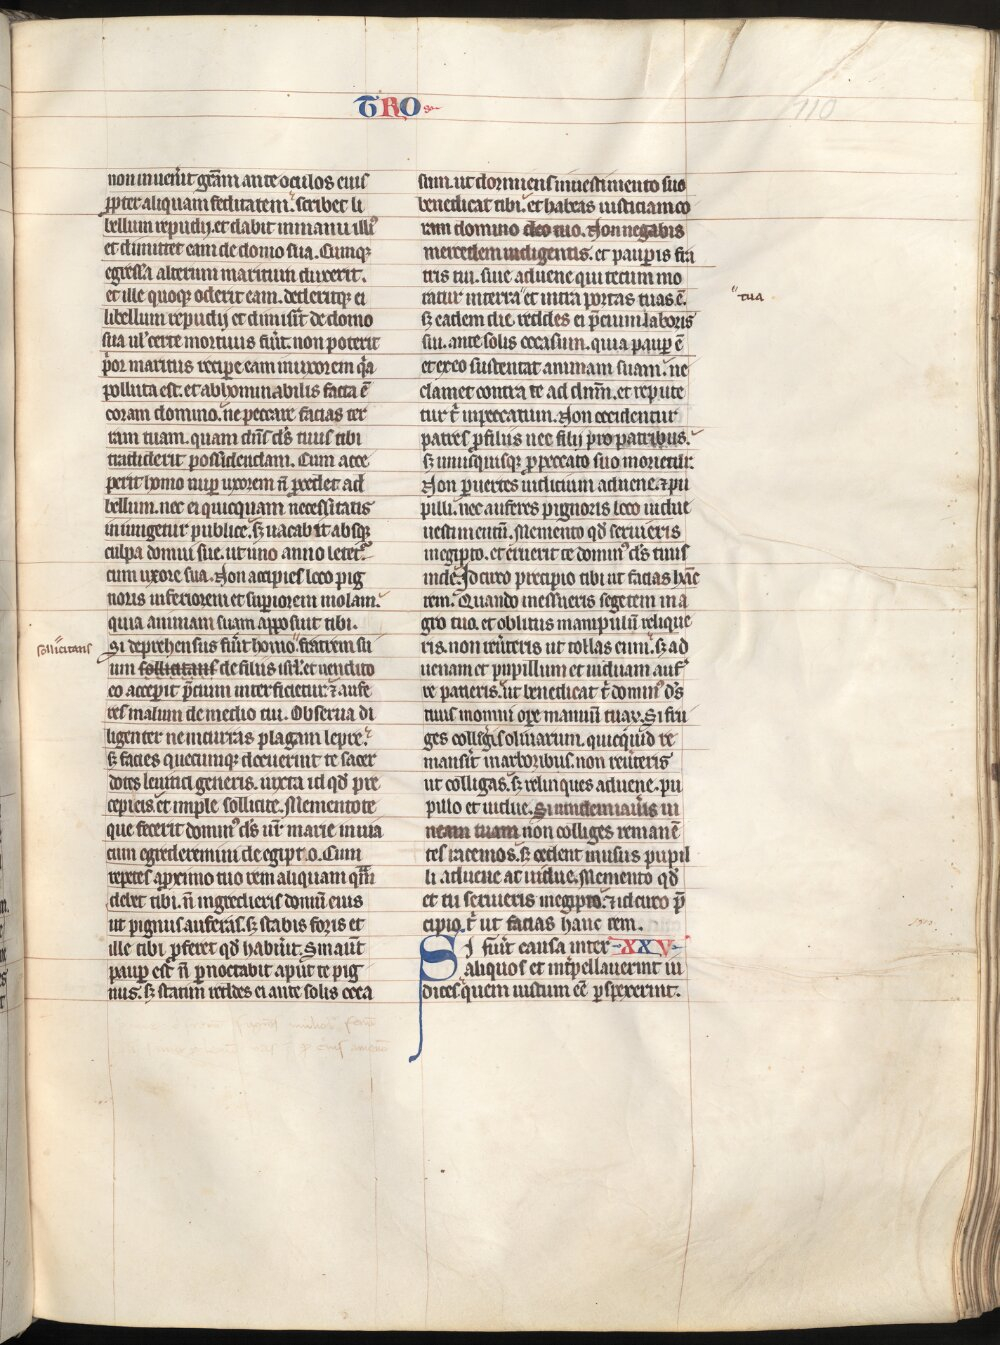 TRO
110
non inuenerit grãm ante oculos eius
ꝓpter aliquam feditatem. scribet li
bellum repudij. et dabit in manu illiꝰ
et dimittet eam de domo sua. Cumqꝫ
egressa alterum maritum duxerit.
et ille quoqꝫ oderit eam. dederitqꝫ ei
libellum repudij et dimiserit de domo
sua ul' certe mortuus fuerit. non poterit
prior maritus recipe eam in uxorem qia
polluta est. et abhominabilis facta ẽ
coram domino. ne peccare facias ter
ram tuam. quam dñs dˢ tuus tibi
tradiderit possidendam. Cum acce
perit homo nuꝑ uxorem ñ procedet ad
bellum. nec ei quicquam necessitatis
iniungetur publice. sꝫ uacabit absqꝫ
culpa domui sue. ut uno anno letetᷣ
cum uxore sua. Non accipies loco pig
noris inferiorem et suꝑiorem molam.
quia animam suam apposuit tibi.
sollicitans
Si deprehensus fuerit homo fratrem su
um sollicitans de filiis isrl'. et uendito
eo acceperit p̃cium interficietur. ⁊ aufe
res malum de medio tui. Obserua di
ligenter ne incurras plagam lepre.
sꝫ facies quecumqꝫ docuerint te sacer
dotes leuitici generis. iuxta id qd̃ pre
cepi eis. et imple sollicite. Mementote
que fecerit dominꝰ dˢ ur̃ marie in uia
cum egrederemini de egipto. Cum
repetes a ꝓximo tuo rem aliquam qm̃
debet tibi. ñ ingredieris domũ eius
ut pignus auferas. sꝫ stabis foris et
ille tibi ꝓferet qd̃ habuerit. Sin aut̃
pauꝑ est ñ ꝑnoctabit aput te pig
nus. sꝫ statim reddes ei ante solis occa
sum. ut dormiens in uestimento suo
benedicat tibi. et habeas iusticiam co
ram domino deo tuo. Non negabis
mercedem indigentis. et pauꝑis fra
tris tui. siue aduene qui tecum mo
ratur in terra et intra portas tuas ẽ.
tua
sꝫ eadem die reddes ei p̃cium laboris
sui. ante solis occasum. quia pauꝑ ẽ
et ex eo sustentat animam suam. ne
clamet contra te ad dñm. et repute
tur t̃ in peccatum. Non occidentur
patres ꝓ filiis nec filij pro patribus.
sꝫ unusquisqꝫ ꝓ peccato suo morietur.
Non ꝑuertes iudicium aduene. ⁊ pu
pilli. nec auferes pignoris loco uidue
uestimentũ. Memento qd̃ seruieris
in egipto. et eruerit te dominꝰ dˢ tuus
inde. Idcirco precipio tibi ut facias hãc
rem. Quando messueris segetem in a
gro tuo. et oblitus manipulũ relique
ris. non reuerteris ut tollas eum. sꝫ ad
uenam et pupillum et uiduam aufer
re pacieris. ut benedicat t̃ dominꝰ dˢ
tuus in omni oꝑe manuũ tuaꝝ. Si fru
ges collegeris oliuarum. quicquid re
manserit in arboribus. non reuerteris
ut colligas. sꝫ relinques aduene. pu
pillo et uidue. Si uindemiaueris ui
neam tuam non colliges remanẽ
tes racemos. sꝫ cedent in usus pupil
li aduene ac uidue. Memento qd̃
et tu seruieris in egipto. ⁊ idcirco p̃
cipio. t̃ ut facias hanc rem.
Si fuerit causa inter XXV
aliquos et int̃pellauerint iu
dices. quem iustum eẽ ꝑspexerint.